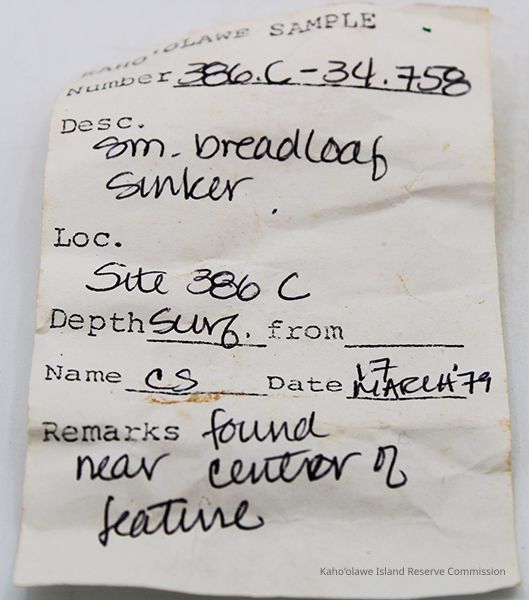 KAHO'OLAWE SAMPLE
Number 386.C-34.758
Desc.
sm. breadloaf
sinker.
Loc.
Site 386 C
Depth surf. from
Name CS Date 17 MARCH '79
Remarks found
near center of
feature
Kaho'olawe Island Reserve Commission